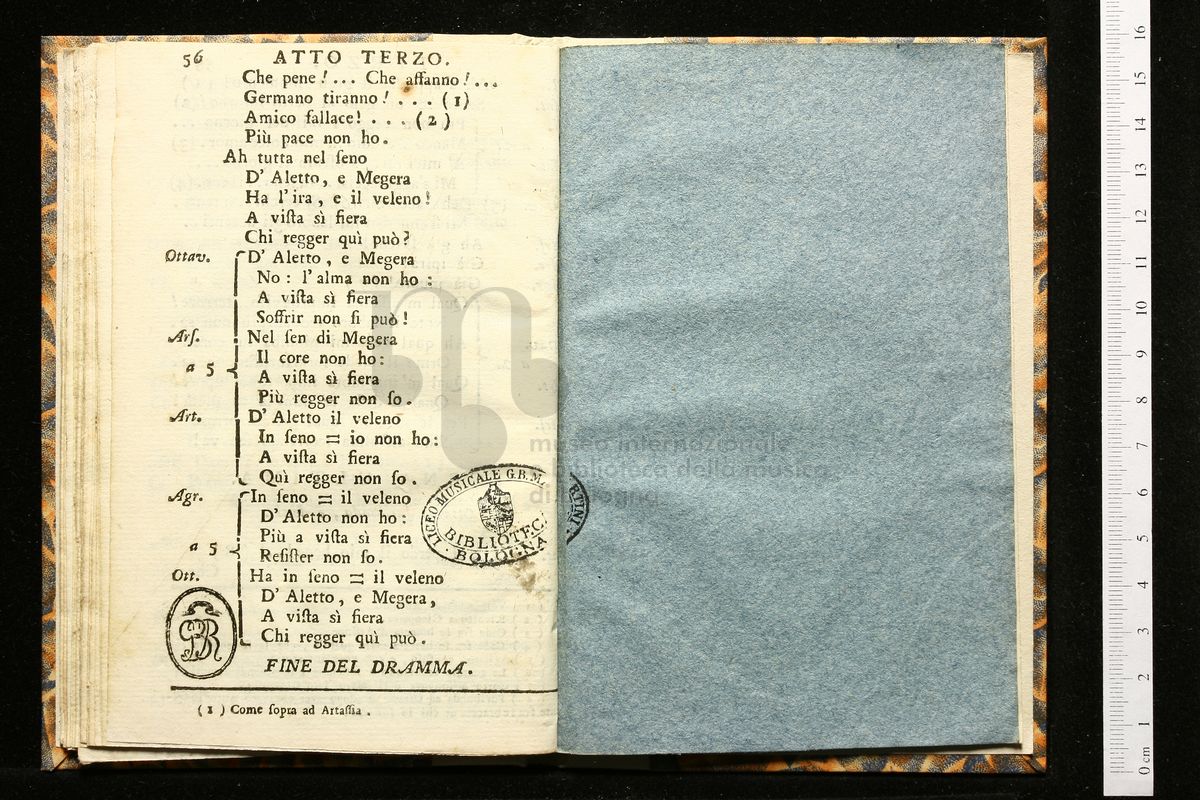 56 ATTO TERZO.
Che pene!... Che affanno!...
Germano tiranno!... (1)
Amico fallace!... (2)
Più pace non ho.
Ah tutta nel ſeno
D' Aletto, e Megera
Ha l'ira, e il veleno!
A viſta sì fiera
Chi regger quì può?
Ottav. D' Aletto, e Megera
No: l'alma non ho:
A viſta sì fiera
Soffrir non ſi può!
Arſ. Nel ſen di Megera
Il core non ho:
a 5 A viſta sì fiera
Più regger non ſo.
Art. D' Aletto il veleno
In ſeno = io non ho:
A viſta sì fiera
Quì regger non ſo.
Agr. In ſeno = il veleno
D' Aletto non ho:
Più a viſta sì fiera
a 5 Reſiſter non ſo.
Ott. Ha in ſeno = il veleno
D' Aletto, e Megera,
A viſta sì fiera
Chi regger quì può.
FINE DEL DRAMMA.
(1) Come ſopra ad Artaſſia.
LICEO MUSICALE G.B. MARTINI
BIBLIOTECA
BOLOGNA
museo internazionale
e biblioteca della musica
di bologna
0 cm 1 2 3 4 5 6 7 8 9 10 11 12 13 14 15 16